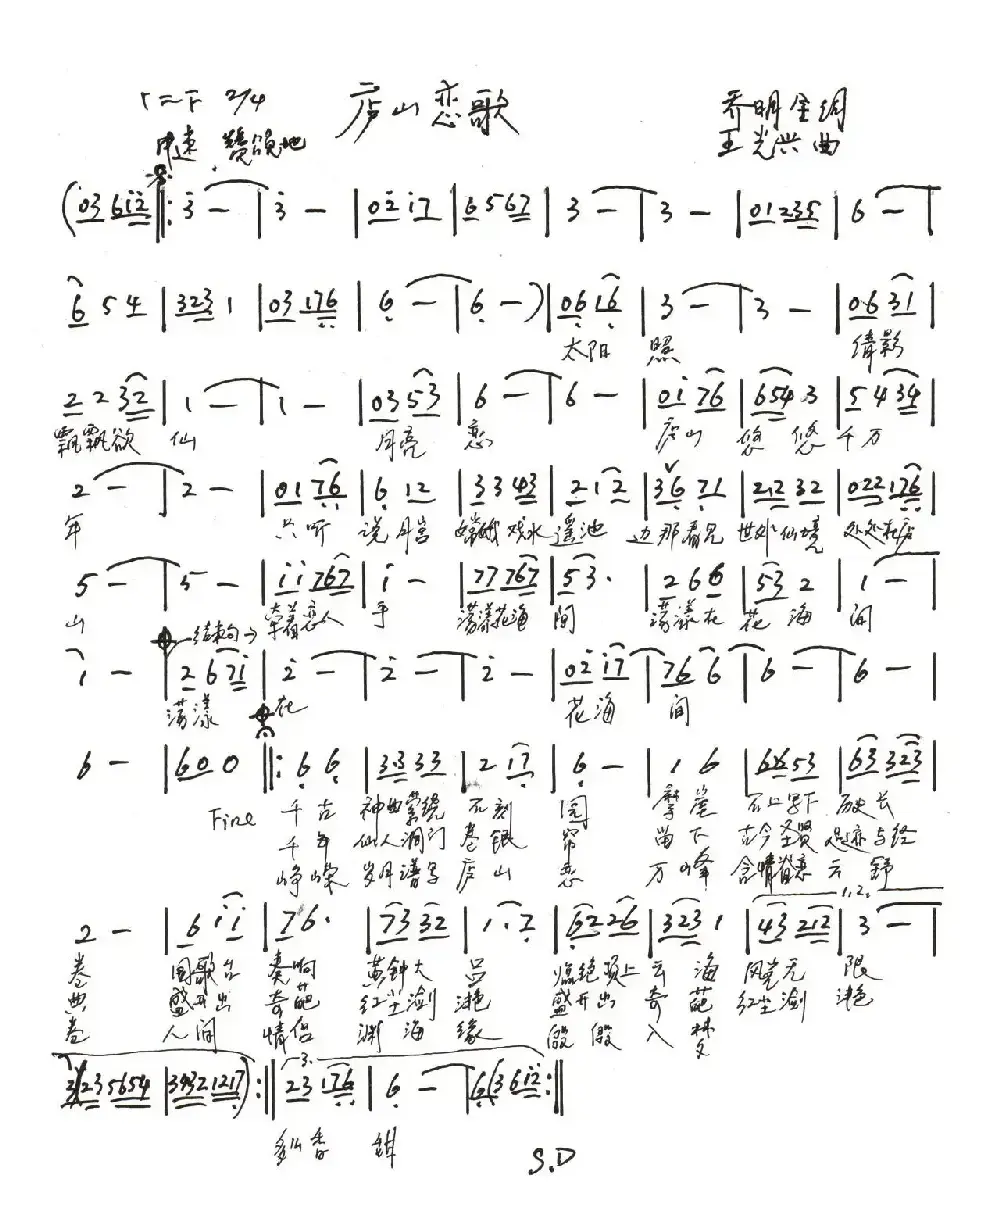 1=F 2/4 庐山恋歌 乔明宝词
中速 赞颂地 王光兴曲
(03 612 ‖: 3 – | 3 – | 02 17 | 6567 | 3 – | 3 – | 01235 | 6 – |
6 5 4 | 323 1 | 03 176 | 6 – | 6 – ) | 06 16 | 3 – | 3 – | 06 31 |
太阳 照 倩影
2 2 32 | 1 – | 1 – | 03 53 | 6 – | 6 – | 01 76 | 654 3 | 5 4 34 |
飘飘欲 仙 月亮 恋 庐山 悠 悠 千万
2 – | 2 – | 01 76 | 6 12 | 33 43 | 2 1 2 | 36 71 | 212 32 | 022 176 |
年 只听 说月宫 嫦娥戏水 瑶池 边那看见 世外仙境 处处在庐
5 – | 5 – | 11 767 | 1 – | 77 767 | 53. | 2 6 6 | 53 2 | 1 – |
山 牵着恋人 手 荡漾花海 间 荡漾在 花 海 间
结束句→
1 – | 2 671 | 2 – | 2 – | 2 – | 02 17 | 76 6 | 6 – | 6 – |
荡漾 在 花海 间
6 – | 600 ‖: 6 6 | 33 33 | 2 17 | 6 – | 1 6 | 66 53 | 63 323 |
Fine 千古 神曲萦绕 石刻 园 摩崖 石上写下 历史长
千年 仙人洞门 卷银 帘 留下 古今圣贤 足迹与经
峥嵘 岁月谱写 庐山 恋 万峰 含情 云 舒
1,2.
2 – | 6 1 1 | 76. | 73 32 | 1. 7 | 62 26 | 323 1 | 43 212 | 3 – |
卷 国歌台 奏响 黄钟大 吕 临绝顶上 云 海 风光无 限
典 盛开出 奇葩 红尘 滟 盛开出 奇 葩 红尘 滟
卷 人间 情侣 渊 海 缘 入 梦
2(235654 | 3432 1217) :‖ 3. 23 176 | 6 – | 6(3 612 :‖
香 甜
S.D